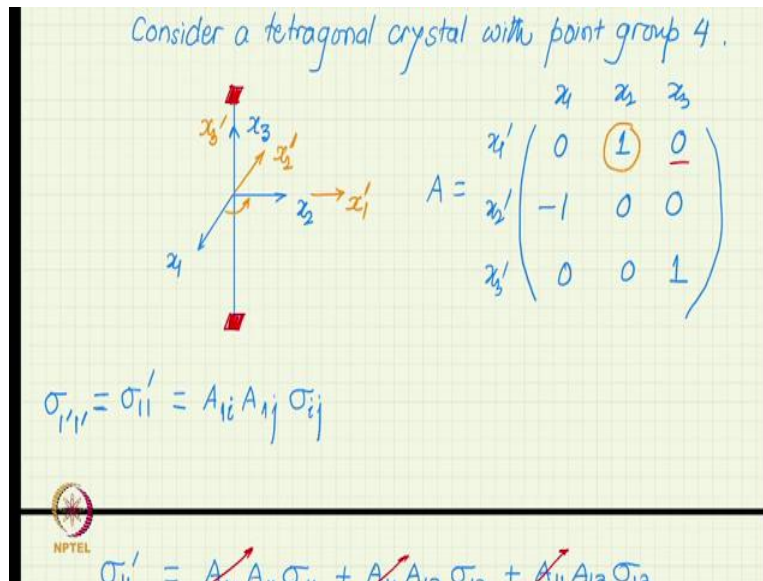 Consider a tetragonal crystal with point group 4.
x₁ x₂ x₃
x₃' x₃ x₂' x₂ x₁' x₁
A =
x₁' 0 1 0
x₂' -1 0 0
x₃' 0 0 1
σ₁'₁' = σ₁₁' = A₁ᵢ A₁ⱼ σᵢⱼ
NPTEL
σ₁₁' = A₁₁ σ₁₁ + A₁₂ σ₁₂ + A₁₁ A₁₃ σ₁₃